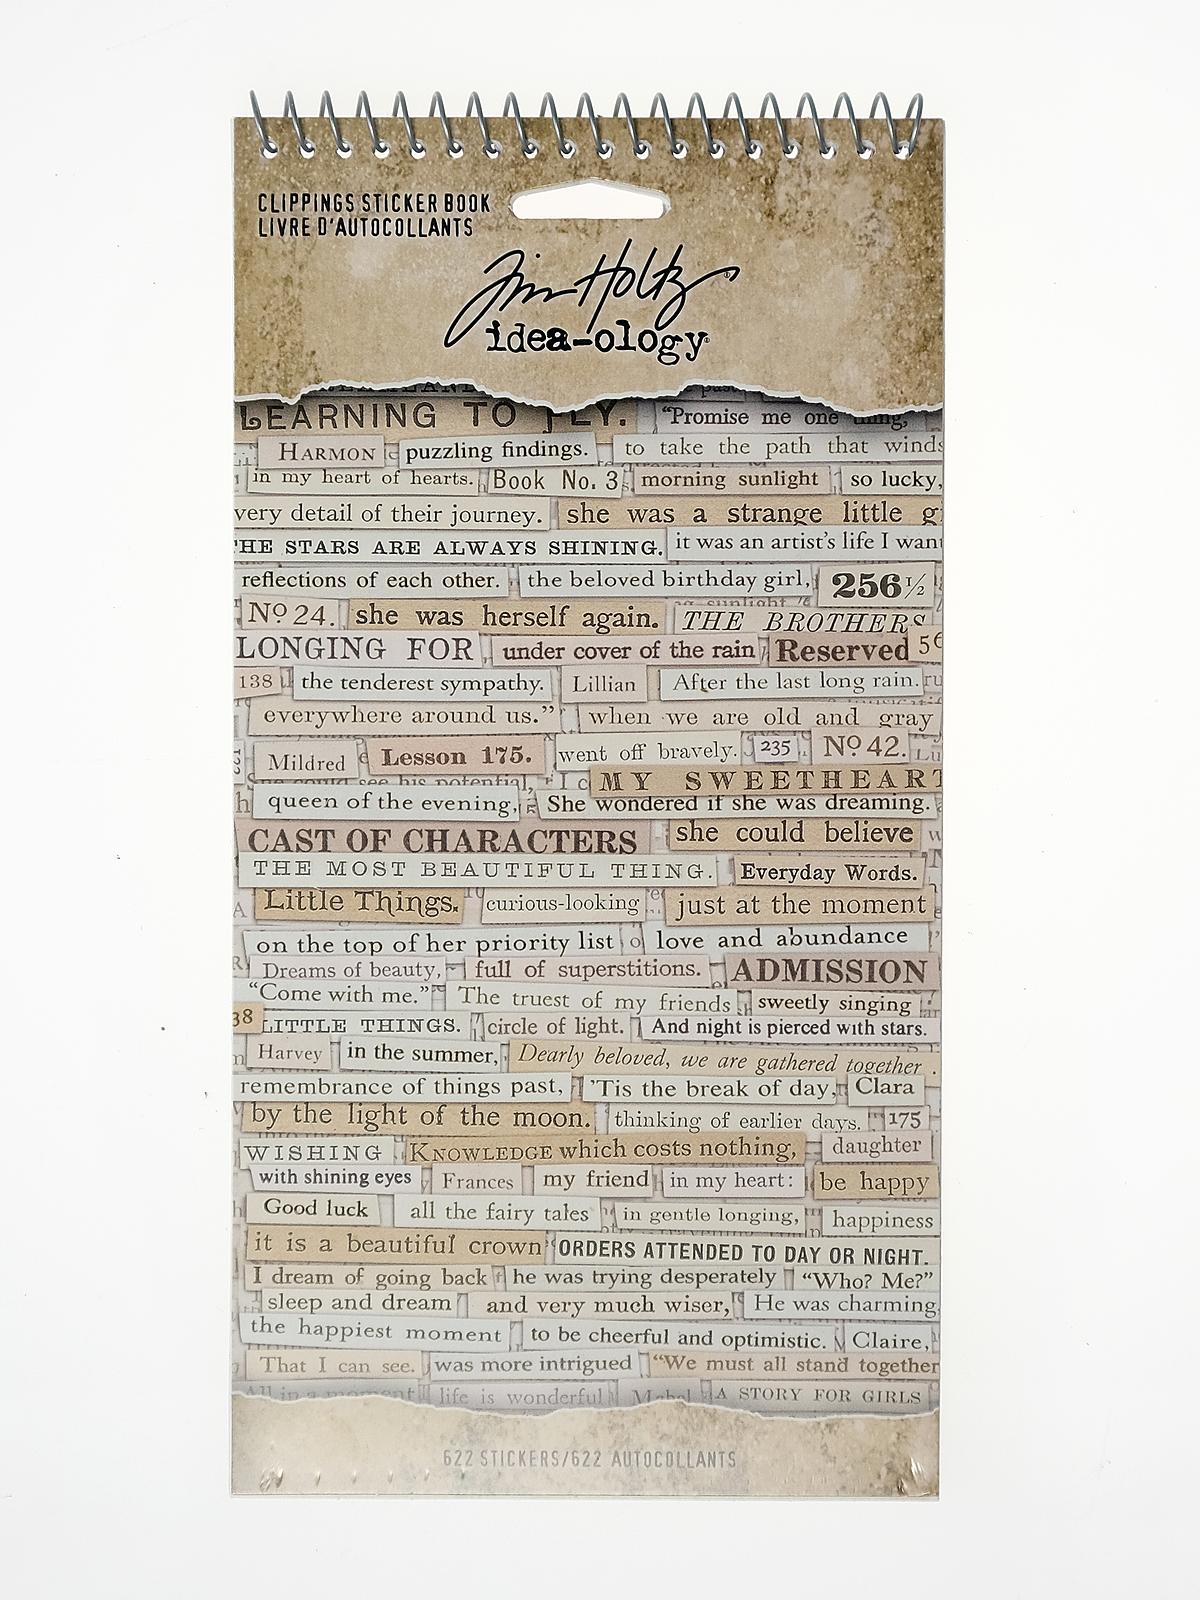 CLIPPINGS STICKER BOOK
LIVRE D'AUTOCOLLANTS
Tim Holtz
idea-ology
LEARNING TO FLY. "Promise me one thing,"
HARMON puzzling findings. to take the path that winds
in my heart of hearts. Book No. 3 morning sunlight so lucky,
very detail of their journey. she was a strange little
THE STARS ARE ALWAYS SHINING. it was an artist's life I want
reflections of each other. the beloved birthday girl, 256 1/2
No 24. she was herself again. THE BROTHERS
LONGING FOR under cover of the rain Reserved
138 the tenderest sympathy. Lillian After the last long rain.
everywhere around us." when we are old and gray
Mildred Lesson 175. went off bravely. 235 No 42.
She could see his potential, MY SWEETHEART
queen of the evening, She wondered if she was dreaming.
CAST OF CHARACTERS she could believe
THE MOST BEAUTIFUL THING. Everyday Words.
Little Things. curious-looking just at the moment
on the top of her priority list love and abundance
Dreams of beauty, full of superstitions. ADMISSION
"Come with me." The truest of my friends sweetly singing
38 LITTLE THINGS. circle of light. And night is pierced with stars.
Harvey in the summer, Dearly beloved, we are gathered together
remembrance of things past, 'Tis the break of day, Clara
by the light of the moon. thinking of earlier days. 175
WISHING KNOWLEDGE which costs nothing, daughter
with shining eyes Frances my friend in my heart: be happy
Good luck all the fairy tales in gentle longing, happiness
it is a beautiful crown ORDERS ATTENDED TO DAY OR NIGHT.
I dream of going back he was trying desperately "Who? Me?"
sleep and dream and very much wiser, He was charming
the happiest moment to be cheerful and optimistic. Claire,
That I can see. was more intrigued "We must all stand together
All in a moment life is wonderful Mabel A STORY FOR GIRLS
622 STICKERS/622 AUTOCOLLANTS